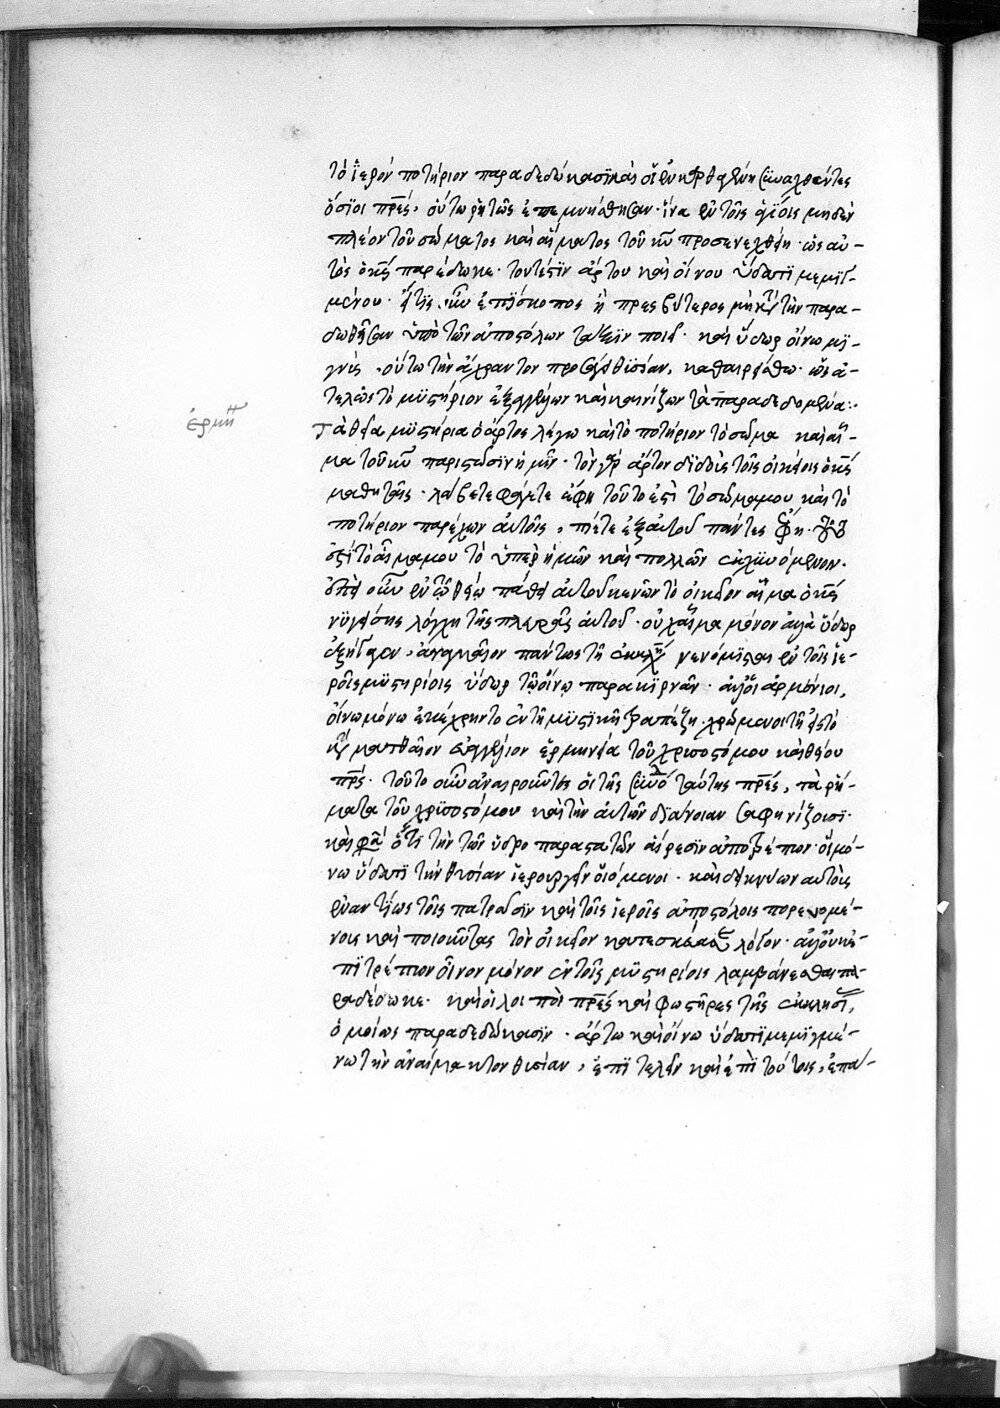 τὸ ἱερόν ποτήριον παραδεδώκασι καὶ οἱ ἐν καρθαγένη συναχθέντες
ὅσιοι πρές. οὕτω ῥητῶς ἐπεμνήσθησαν. ἵνα ἐν τοῖς ἁγίοις μηδὲν
πλέον τοῦ σώματος καὶ αἵματος τοῦ κυ προσενεχθείη. ὡς αὐ-
τὸς ὁ κς παρέδωκε. τουτέστιν ἄρτου καὶ οἴνου ὕδατι μεμιγ-
μένου. εἴ τις οὖν ἐπίσκοπος ἢ πρεσβύτερος μὴ κτ τὴν παρα-
δωθεῖσαν ὑπὸ τῶν ἀποστόλων τάξιν ποιεῖ. καὶ ὕδωρ οἴνω μι-
γνὺς. οὕτω τὴν ἄχραντον προσάγει θυσίαν, καθαιρείσθω. ὡς ἀ-
τελῶς τὸ μυστήριον ἐξαγγέλων καὶ καινίζων τὰ παραδεδομένα:
ἑρμη
Τὰ θεῖα μυστήρια ὁ ἄρτος λέγω καὶ τὸ ποτήριον τὸ σῶμα καὶ αἷ-
μα τοῦ κυ παριστῶσιν ἡμῖν. τὸν γὰρ ἄρτον διδοὺς τοῖς οἰκείοις ὁ κς
μαθηταῖς. λάβετε φάγετε ἔφη τοῦτο ἐστὶ τὸ σῶμα μου καὶ τὸ
ποτήριον παρέχων αὐτοῖς, πίετε ἐξ αὐτοῦ πάντες ἔφη. τοῦτο
ἐστὶ τὸ αἷμα μου τὸ ὑπὲρ ἡμῶν καὶ πολλῶν ἐκχυνόμενον.
ἐπεὶ οὖν ἐν τῷ θείῳ πάθει αὐτοῦ κενῶν τὸ οἰκεῖον αἷμα ὁ κς
νυγείσης λόγχη τῆς πλευρᾶς αὐτοῦ. οὐχ αἷμα μόνον ἀλλὰ ὕδωρ
ἐξήγαγεν, ἀναγκαῖον πάντως τῇ ἐκκλη νενόμισται ἐν τοῖς ἱε-
ροῖς μυστηρίοις ὕδωρ τῷ οἴνω παρακιρνᾶν. ἀλλ' οἱ ἀρμένιοι,
οἴνω μόνω ἐκέχρηντο ἐν τῇ μυστικῇ τραπέζη. χρώμενοι τῇ εἰς τὸ
κτ ματθαῖον εὐαγγέλιον ἑρμηνεία τοῦ χρυσοστόμου καὶ θείου
πρς. τοῦτο οὖν ἀναιροῦντες οἱ τῆς συνό ταύτης πρές, τὰ ῥή-
ματα τοῦ χρυσοστόμου καὶ τὴν αὐτῶν διάνοιαν σαφηνίζουσι.
καὶ φα ὅτι τὴν τῶν ὑδροπαραστατῶν αἵρεσιν ἀποτρέπων. οἳ μό-
νω ὕδατι τὴν θυσίαν ἱερουργεῖν οἰόμενοι. καὶ δεικνύων αὐτοὺς
ἐναντίως τοῖς πατράσιν καὶ τοῖς ἱεροῖς ἀποστόλοις πορευομέ-
νοις καὶ ποιοῦντας τὸν οἰκεῖον κατεσκεύασε λόγον. ἀλλ' οὐκ ἐ-
πιτρέπων οἶνον μόνον ἐν τοῖς μυστηρίοις λαμβάνεσθαι πα-
ραδέδωκε. καὶ οἱ λοιποὶ πρές καὶ φωστῆρες τῆς ἐκκλησί,
ὁμοίως παραδεδώκασιν. ἄρτω καὶ οἴνω ὕδατι μεμιγμέ-
νω τὴν ἀναίμακτον θυσίαν, ἐπιτελεῖν καὶ ἐπὶ τούτοις, ἐπα-